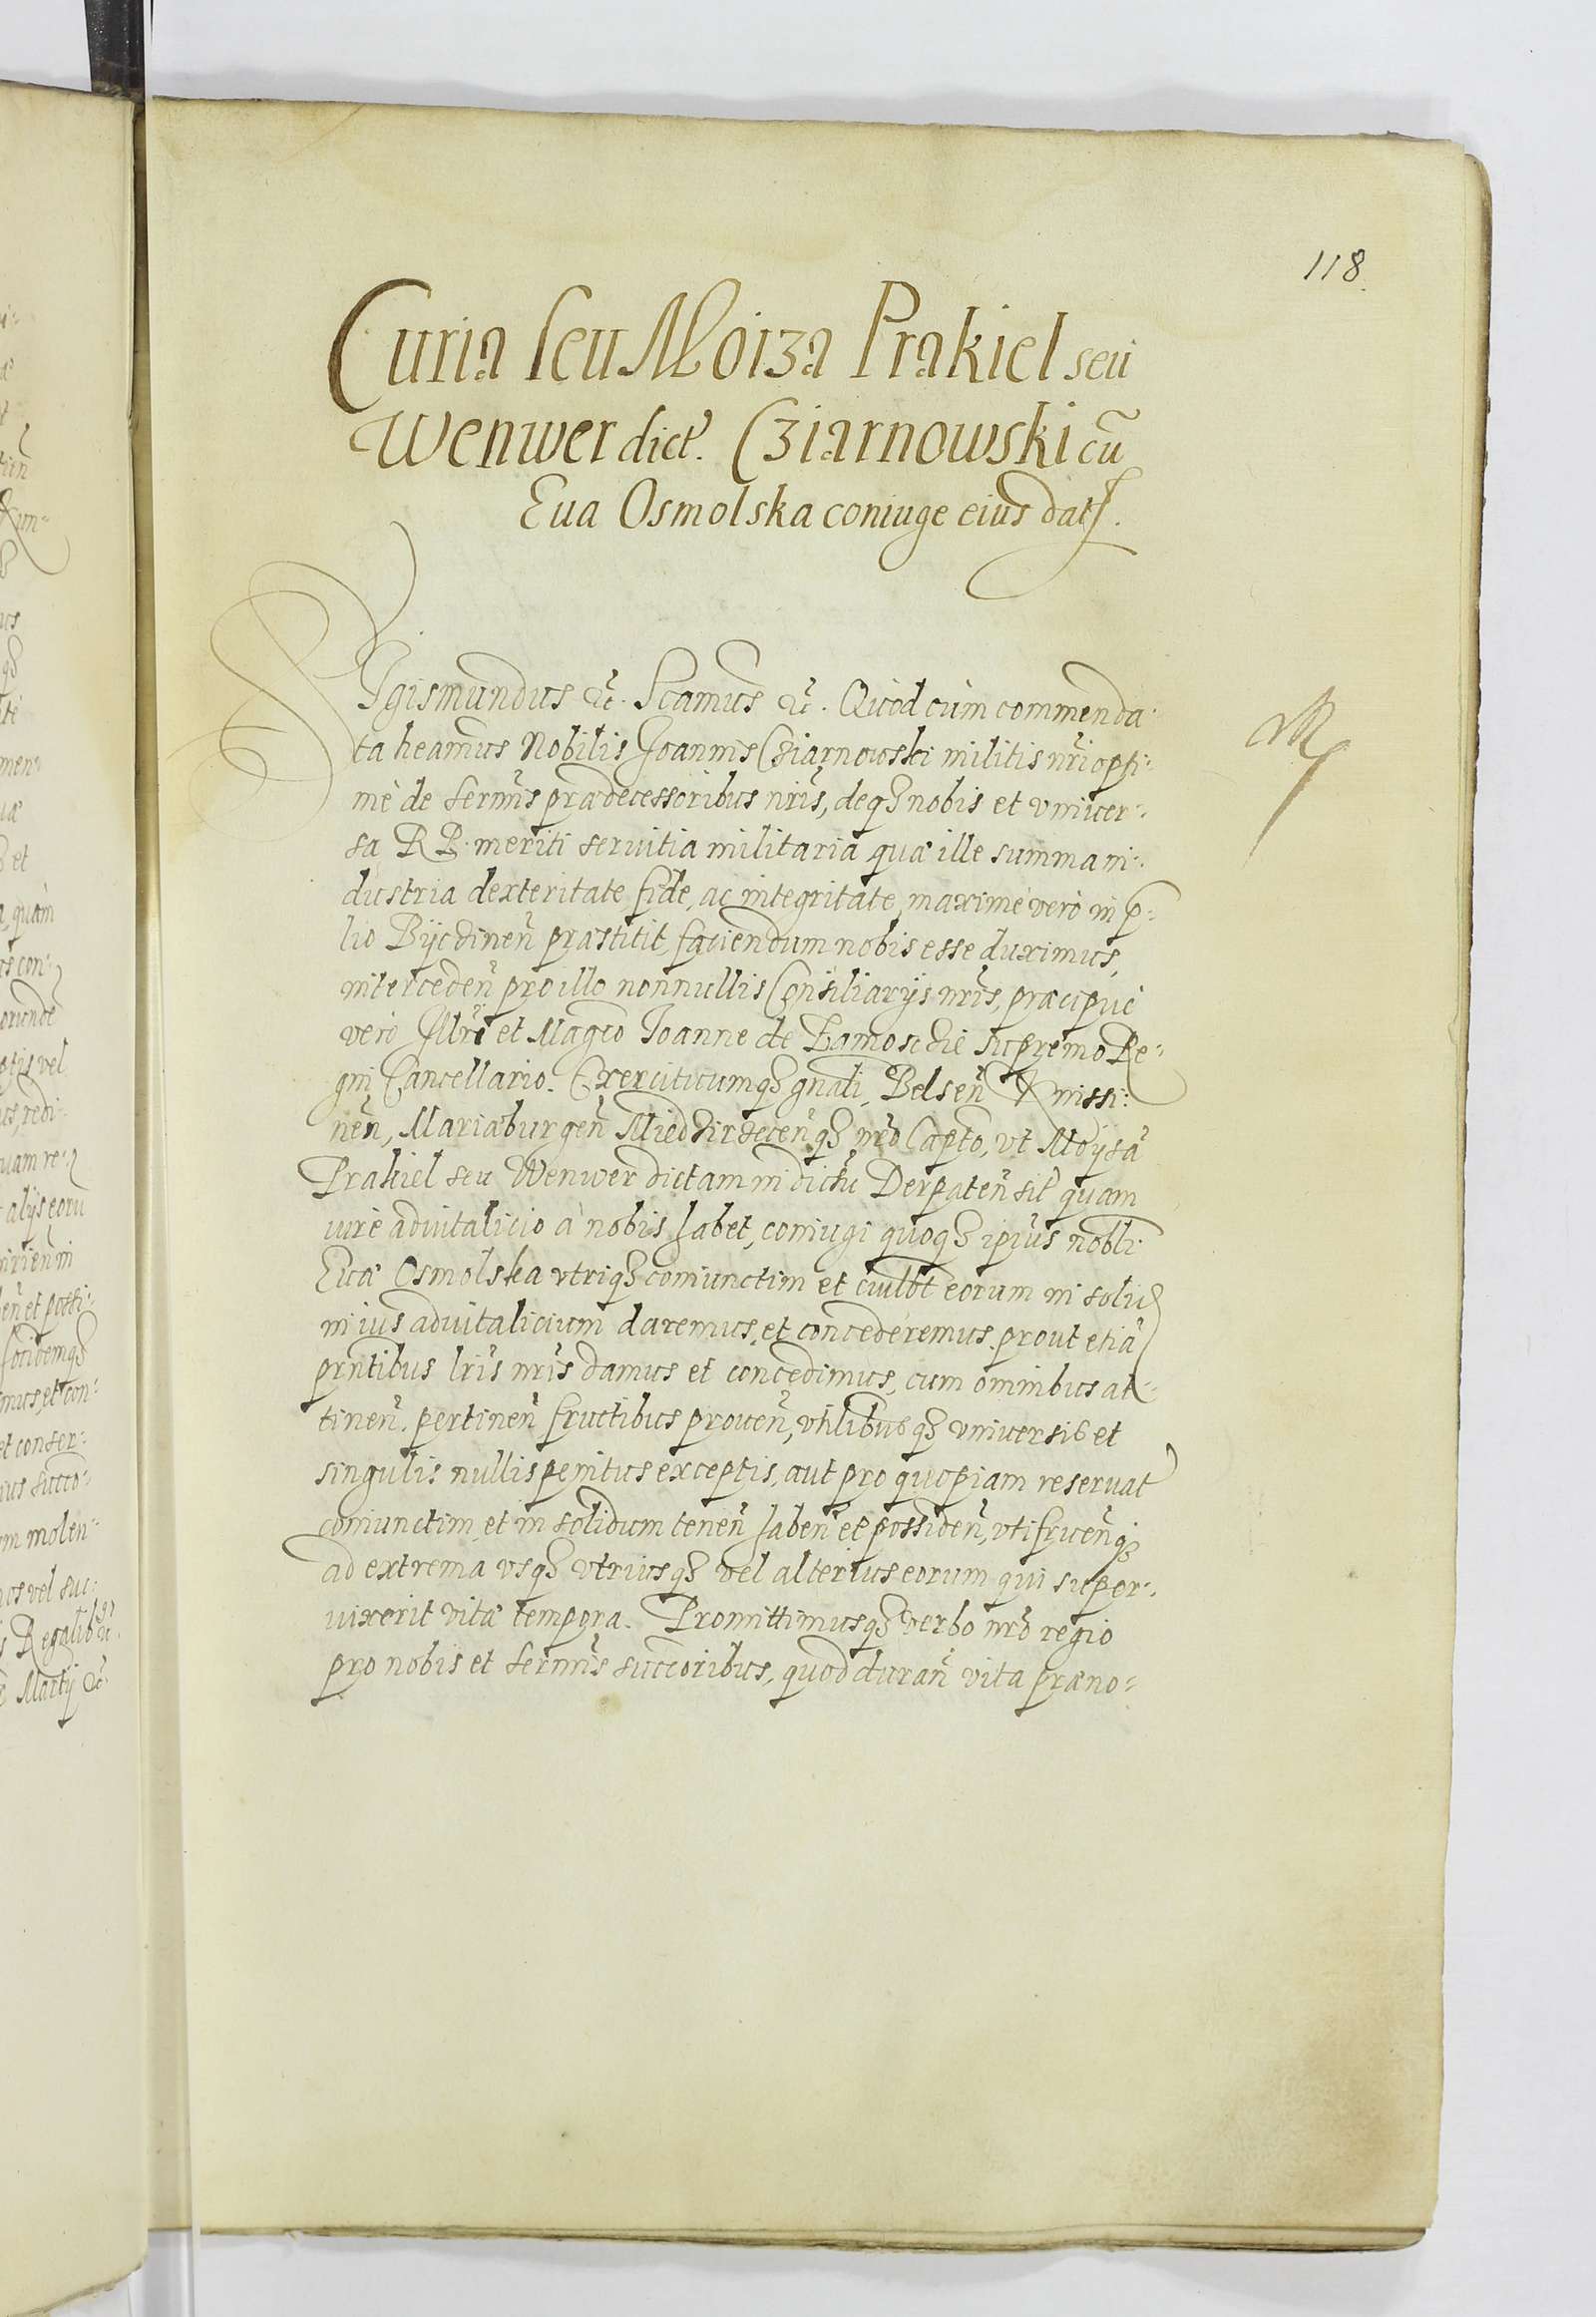 118.
Curia seu Moiza Prakiel seu
Wenwer dict. Cziarnowski cū
Eua Osmolska coniuge eius dat.
SIgismundus &c. Scamus &c. Quod cùm commenda-
ta heamus Nobilis Joannis Cziarnowski militis nri opti-
mè de sermis prædecessoribus nris, deq3 nobis et vniuer-
sa RP. meriti seruitia militaria quæ ille summa in-
dustria dexteritate fide, ac integritate, maximè verò in p-
lio Byczinen præstitit, faciendum nobis esse duximus,
interceden pro illo nonnullis Consiliarijs nris, præcipuè
verò Illri et Magco Joanne de Zamoscie supremo Re-
gni Cancellario. Exercituumq3 gnali, Belsen Knissi-
nen, Mariæburgen Miedzirzecenq3 nro Capto, vt Moysā
Prakiel seu Wenwer dictam in dictu Derpaten sit quam
iure aduitalicio à nobis habet, coniugi quoq3 ipius nobli
Euæ Osmolska vtriq3 coniunctim et cuilbt eorum in solid
in ius aduitalicium daremus, et concederemus. prout etiā
prntibus lris nris damus et concedimus, cum omnibus at-
tinen. pertinen fructibus prouen, vtilibusq3 vniuersis et
singulis nullis penitus exceptis, aut pro quopiam reseruat
coniunctim et in solidum tenen haben et possiden, vtifruenq3
ad extrema vsq3 vtriusq3 vel alterius eorum qui super-
uixerit vitæ tempora. Promittimusq3 verbo nro regio
pro nobis et sermis succoribus, quod duran vita præno-